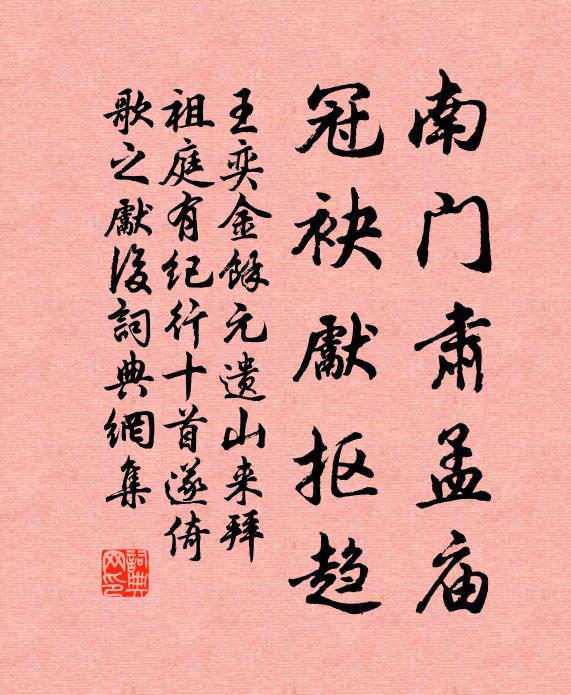 南门肃孟庙
冠袂献抠趋
王奕金馀元遗山来拜
祖庭有纪行十首遂倚
歌之献后词典网集
詞典網印